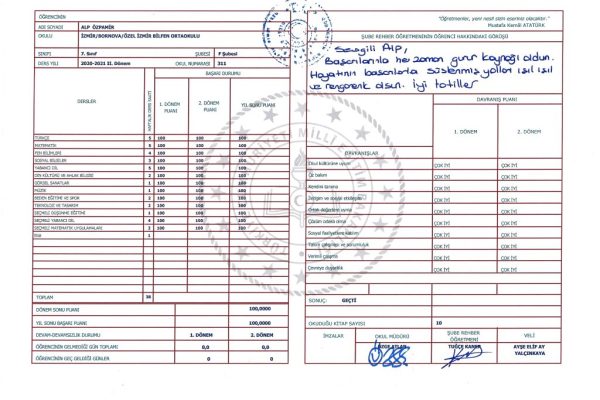 ÖĞRENCİNİN
ADI SOYADI ALP ÖZPAMİR
OKULU İZMİR/BORNOVA/ÖZEL İZMİR BİLFEN ORTAOKULU
SINIFI 7. Sınıf ŞUBESİ F Şubesi
DERS YILI 2020-2021 II. Dönem OKUL NUMARASI 311
DERSLER HAFTALIK DERS SAATİ BAŞARI DURUMU
1. DÖNEM PUANI 2. DÖNEM PUANI YIL SONU PUANI
TÜRKÇE 5 100 100 100
MATEMATİK 5 100 100 100
FEN BİLİMLERİ 4 100 100 100
SOSYAL BİLGİLER 3 100 100 100
YABANCI DİL 5 100 100 100
DİN KÜLTÜRÜ VE AHLAK BİLGİSİ 2 100 100 100
GÖRSEL SANATLAR 1 100 100 100
MÜZİK 1 100 100 100
BEDEN EĞİTİMİ VE SPOR 2 100 100 100
TEKNOLOJİ VE TASARIM 2 100 100 100
SEÇMELİ DÜŞÜNME EĞİTİMİ 1 100 100 100
SEÇMELİ YABANCI DİL 4 100 100 100
SEÇMELİ MATEMATİK UYGULAMALARI 2 100 100 100
1
TOPLAM 38
DÖNEM SONU PUANI 100,0000
YIL SONU BAŞARI PUANI 100,0000
DEVAM-DEVAMSIZLIK DURUMU 1. DÖNEM 2. DÖNEM
ÖĞRENCİNİN GELMEDİĞİ GÜN TOPLAMI 0,0 0,0
ÖĞRENCİNİN GEÇ GELDİĞİ GÜNLER 0 0
"Öğretmenler, yeni nesil sizin eseriniz olacaktır."
Mustafa Kemâl ATATÜRK
ŞUBE REHBER ÖĞRETMENİNİN ÖĞRENCİ HAKKINDAKİ GÖRÜŞÜ
Sevgili Alp,
Başarılarınla her zaman gurur kaynağı oldun.
Hayatının başarılarla süslenmiş yolları ışıl ışıl
ve rengarenk olsun. İyi tatiller
DAVRANIŞ PUANI
DAVRANIŞLAR 1. DÖNEM 2. DÖNEM
Okul kültürüne uyum ÇOK İYİ ÇOK İYİ
Öz bakım ÇOK İYİ ÇOK İYİ
Kendini tanıma ÇOK İYİ ÇOK İYİ
İletişim ve sosyal etkileşim ÇOK İYİ ÇOK İYİ
Ortak değerlere uyma ÇOK İYİ ÇOK İYİ
Çözüm odaklı olma ÇOK İYİ ÇOK İYİ
Sosyal faaliyetlere katılım ÇOK İYİ ÇOK İYİ
Takım çalışması ve sorumluluk ÇOK İYİ ÇOK İYİ
Verimli çalışma ÇOK İYİ ÇOK İYİ
Çevreye duyarlılık ÇOK İYİ ÇOK İYİ
SONUÇ: GEÇTİ
OKUDUĞU KİTAP SAYISI 10
İMZALAR OKUL MÜDÜRÜ ŞUBE REHBER ÖĞRETMENİ VELİ
TUĞÇE AYŞE ELİF AY YALÇINKAYA